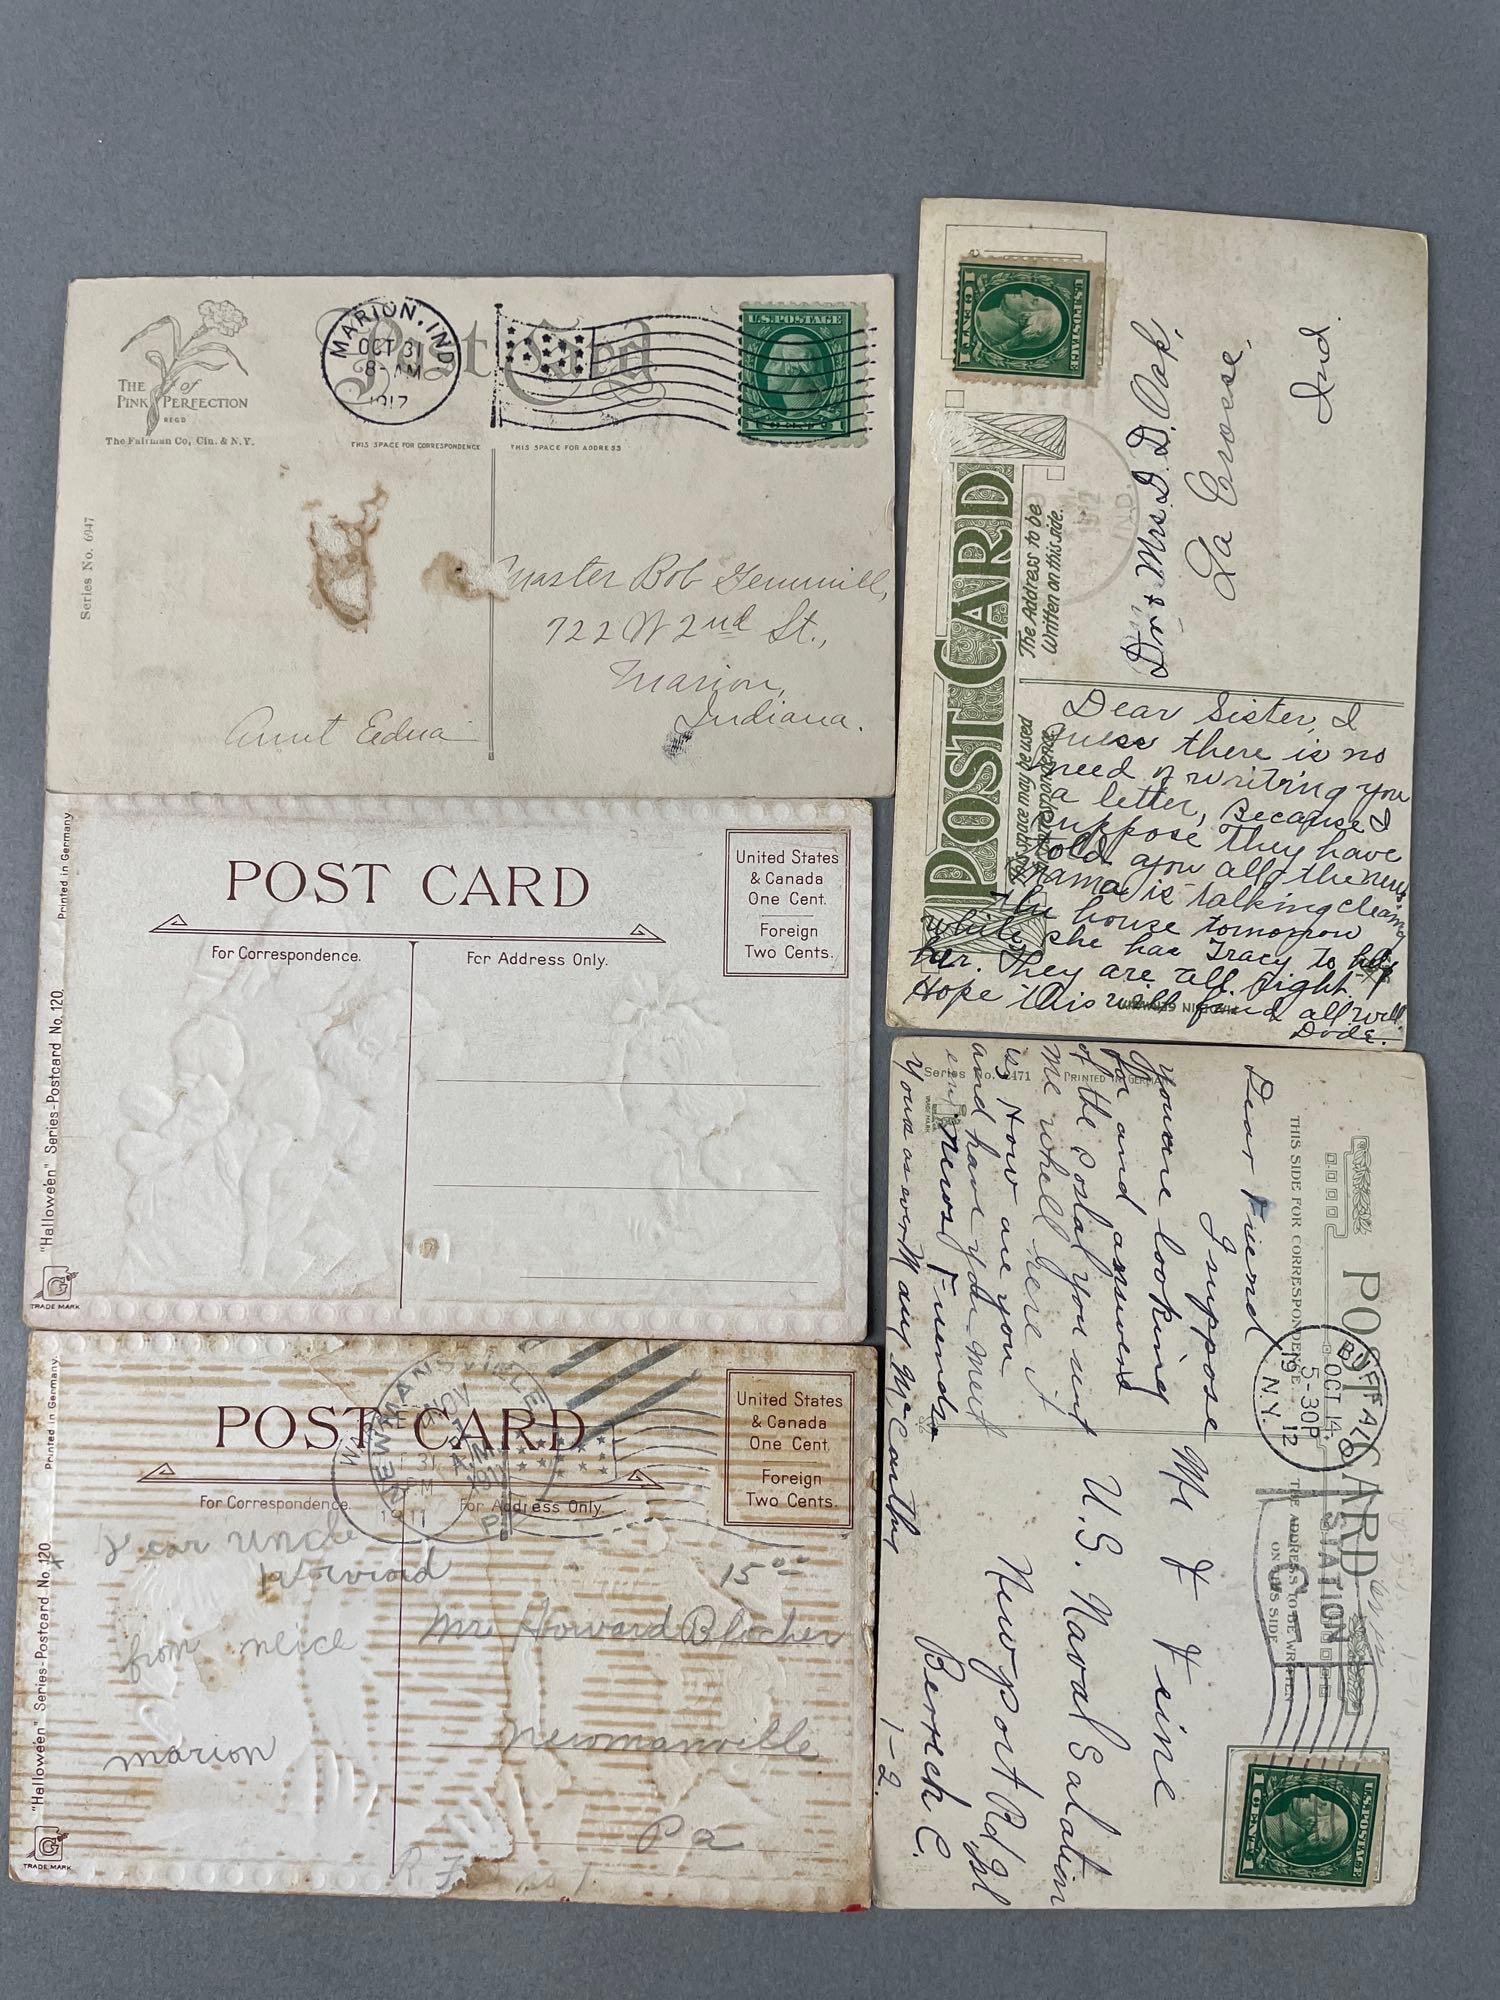 THE of
PINK PERFECTION
REGD
The Fairman Co, Cin. & N.Y.
Series No. 6947
Post Card
MARION, IND
OCT 31
8-AM
1917
THIS SPACE FOR CORRESPONDENCE
THIS SPACE FOR ADDRESS
U.S. POSTAGE
Master Bob Gemmill,
722 W 2nd St.,
Marion,
Indiana.
Aunt Edna
Printed in Germany
POST CARD
For Correspondence.
For Address Only.
United States
& Canada
One Cent.
Foreign
Two Cents.
"Hallowe'en" Series-Postcard No. 120.
G
TRADE MARK
Printed in Germany.
POST CARD
For Correspondence.
For Address Only.
United States
& Canada
One Cent.
Foreign
Two Cents.
NEWMANSVILLE
NOV
A.M.
1911
PA
1911
Dear Uncle
Howard
from neice
marion
15 00
Mr. Howard Blocher
Newmanville
Pa
"Hallowe'en" Series-Postcard No. 120
G
TRADE MARK
U.S. POSTAGE
1 CENT 1
POST CARD
The Address to be
Written on this side.
This space may be used
for correspondence.
IND.
Dr. & Mrs. D. D.
La Crosse,
Ind.
Dear Sister, I
guess there is no
need of writing you
a letter, Because I
suppose they have
told you all the news.
Mama is talking cleaning
the house tomorrow
while she has Tracy to help
her. They are all right.
Hope this will find all well.
Dode.
Series No. 2471
PRINTED IN GERMANY
POST CARD
THIS SIDE FOR CORRESPONDENCE.
THE ADDRESS TO BE WRITTEN
ON THIS SIDE
BUFFALO
OCT 14
5-30P
1912
N.Y.
STATION
C
U.S. POSTAGE
1 CENT 1
Dear Friend
I suppose
you are looking
for and answere
of the Postal you sent
me whell here it
is How are you
and have you meet
eny News Friends
Yours as ever Mary McCarthy
Mr F Feine
U.S. Naval Salation
Newport Rd Isl
Berrek C.
1-2.